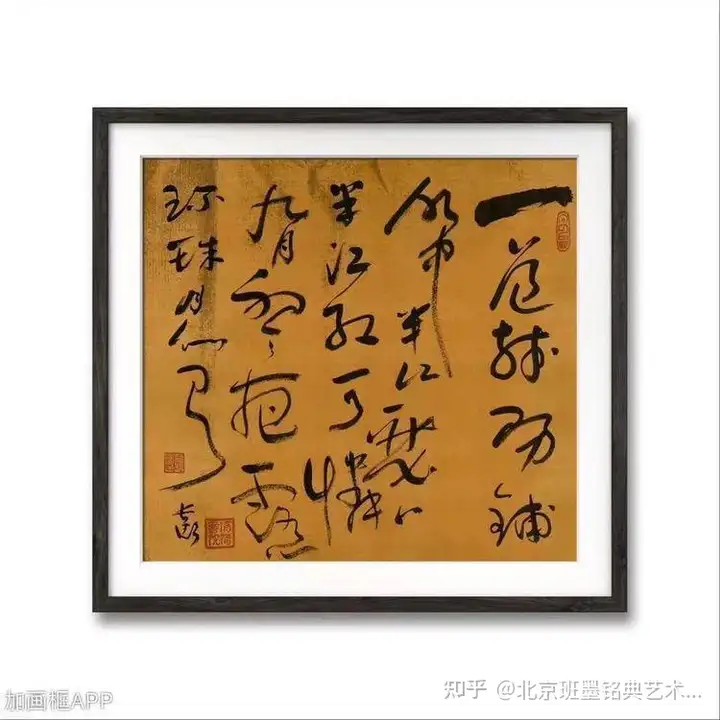 一道殘陽鋪
水中半江瑟瑟
半江紅可憐
九月初三夜露似
珍珠月似弓
加画框APP
知乎 @北京班墨铭典艺术...